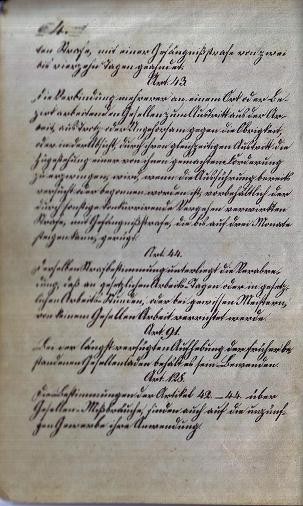 4.
ten Strafe, mit einer Gefängnißstrafe von zwei
bis vierzehn Tagen geahndet.
Art. 43.
Die Verbindung mehrerer an einem Ort oder Be-
zirk arbeitenden Gesellen zum Austritt aus der Ar-
beit, aus Trotz oder Ungehorsam gegen die Obrigkeit,
oder in der Absicht, durch ihren gleichzeitigen Austritt die
Zugestehung einer von ihnen gemachten Forderung
zu erzwingen, wird, wenn die Ausführung bereits
versucht oder begonnen worden ist, vorbehältlich der
durch sonstige konkurrirende Vergehen verwirkten
Strafe, mit Gefängnißstrafe, die bis auf drei Monate
steigen kann, gerügt.
Art. 44.
Derselben Strafbestimmung unterliegt die Verabre-
dung, daß an gesetzlichen Arbeits-Tagen oder in gesetz-
lichen Arbeits-Stunden, oder bei gewissen Meistern,
von keinem Gesellen Arbeit verrichtet werde.
Art. 91.
Bei der längst verfügten Aufhebung der früher be-
standenen Gesellenladen behält es sein Bewenden.
Art. 125.
Die Bestimmungen der Artikel 42 – 44 über
Gesellen-Mißbräuche, finden auch auf die unzünf-
tigen Gewerbe ihre Anwendung.